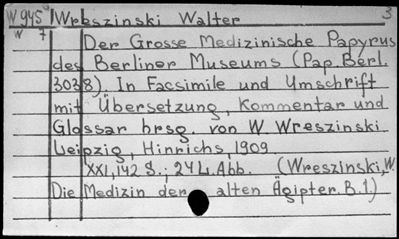 W 945 a Wreszinski Walter 3
W 7 Der Grosse Medizinische Papyrus
des Berliner Museums (Pap. Berl.
3038). In Facsimile und Umschrift
mit Übersetzung, Kommentar und
Glossar hrsg. von W. Wreszinski
Leipzig, Hinrichs, 1909
XXI, 142 S.; 24 L. Abb. (Wreszinski, W.
Die Medizin der alten Ägipter. B. 1.)